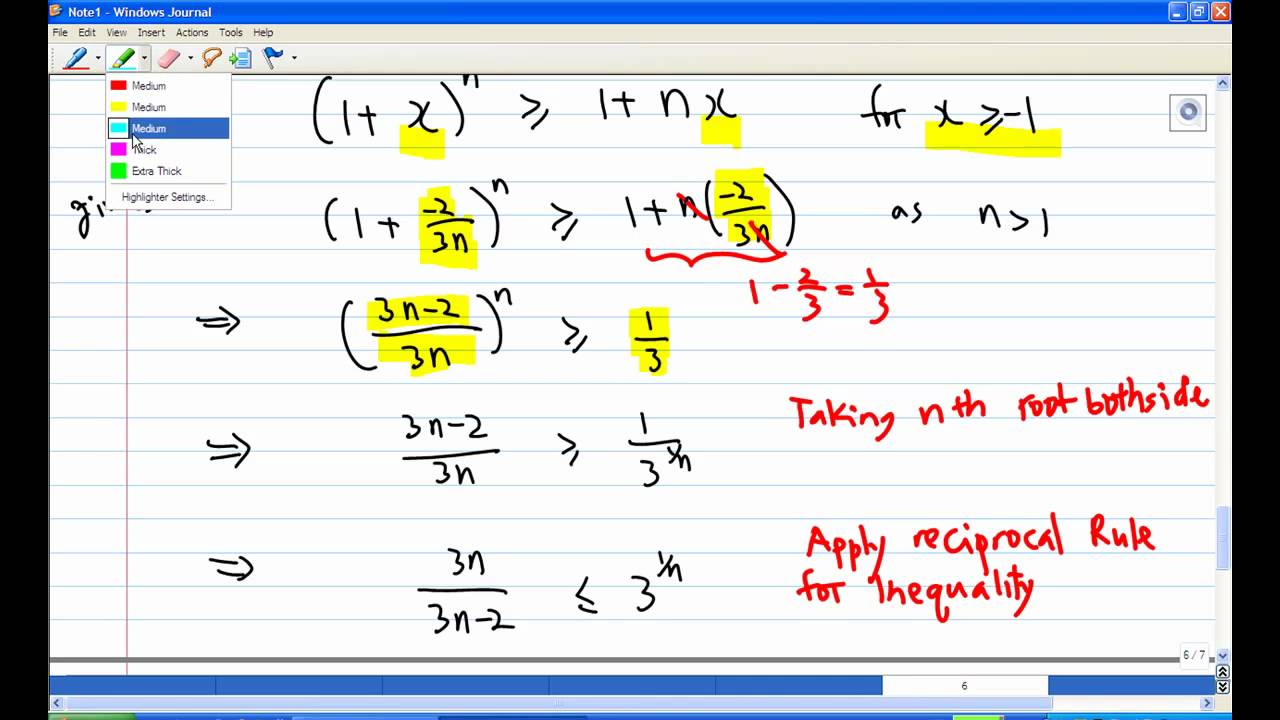 Note1 - Windows Journal
File Edit View Insert Actions Tools Help
Medium
Medium
Medium
Thick
Extra Thick
Highlighter Settings...
(1 + x)^n ≥ 1 + nx for x ≥ -1
(1 + -2/3n)^n ≥ 1 + n(-2/3n) as n > 1
1 - 2/3 = 1/3
⇒ (3n-2/3n)^n ≥ 1/3
Taking nth root bothside
⇒ 3n-2/3n ≥ 1/3^1/n
Apply reciprocal Rule
for Inequality
⇒ 3n/3n-2 ≤ 3^1/n
6 / 7
6